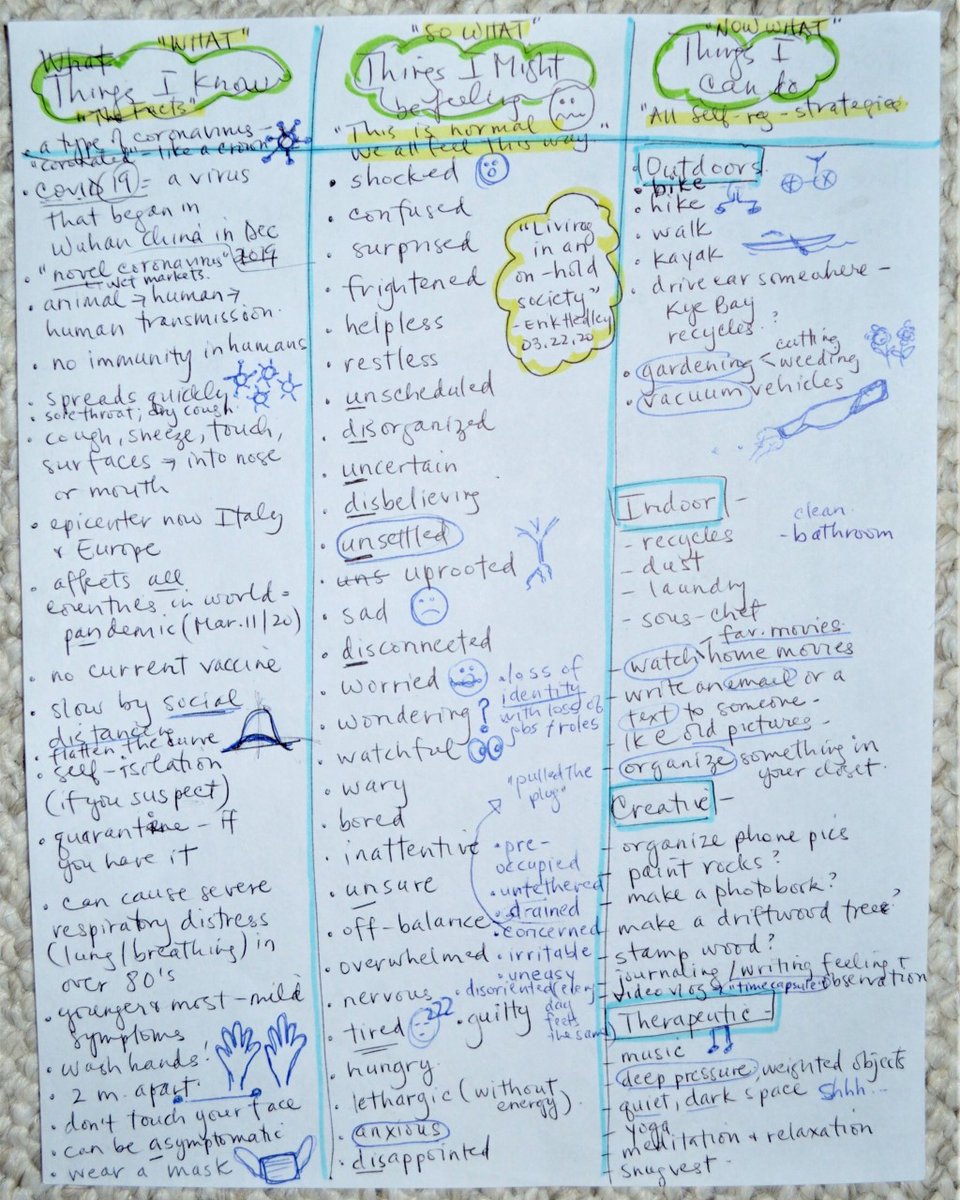 "WHAT"
What
Things I Know
"The Facts"
• a type of coronavirus -
"coronated" - like a crown
• Covid 19 = a virus
that began in
Wuhan China in Dec
2019
• "novel coronavirus"
wet markets.
• animal → human →
human transmission.
• no immunity in humans
• spreads quickly
• sore throat; dry cough.
• cough, sneeze, touch,
surfaces → into nose
or mouth
• epicenter now Italy
& Europe
• affects all
countries in world =
pandemic (Mar. 11/20)
• no current vaccine
• slow by social
distancing
• flatten the curve
• self-isolation
(if you suspect)
• quarantine - if
you have it
• can cause severe
respiratory distress
(lung/breathing) in
over 80's
• younger & most - mild
symptoms
• wash hands!
• 2 m. apart.
• don't touch your face
• can be asymptomatic
• wear a mask
"SO WHAT"
Things I Might
be feeling
"This is normal
We all feel this way"
• shocked
• confused
• surprised
• frightened
• helpless
• restless
• unscheduled
• disorganized
• uncertain
• disbelieving
• unsettled
• uns uprooted
• sad
• disconnected
• worried
• wondering ?
• watchful
• wary
• bored
• inattentive
• unsure
• off-balance
• overwhelmed
• nervous
• tired
zzz
• hungry
• lethargic (without
energy).
• anxious
• disappointed
"Living
in an
on-hold
society"
03.22.20
• loss of
identity
with loss of
jobs/roles
"pulled the
plug"
• pre-
occupied
• untethered
• drained
• concerned
• irritable
• uneasy
• disoriented every
day
feels
the same
• guilty
"NOW WHAT"
Things I
Can do
"All self-reg-strategies
Outdoors
• bike
• hike
• walk
• kayak
• drive car somewhere -
Kye Bay
recycles?
• gardening < cutting
weeding
• vacuum vehicles
Indoor -
- recycles
- dust
- laundry
- sous-chef
clean
- bathroom
fav. movies
- watch home movies
- write an email or a
text to someone -
- like old pictures -
- organize something in
your closet.
Creative -
- organize phone pics
- paint rocks?
- make a photobook?
- make a driftwood tree?
- stamp wood?
- journaling/writing feeling +
- video vlogs "time capsule" observation
Therapeutic -
- music
- deep pressure, weighted objects
- quiet, dark space Shhh...
- yoga
- meditation & relaxation
- snugvest -